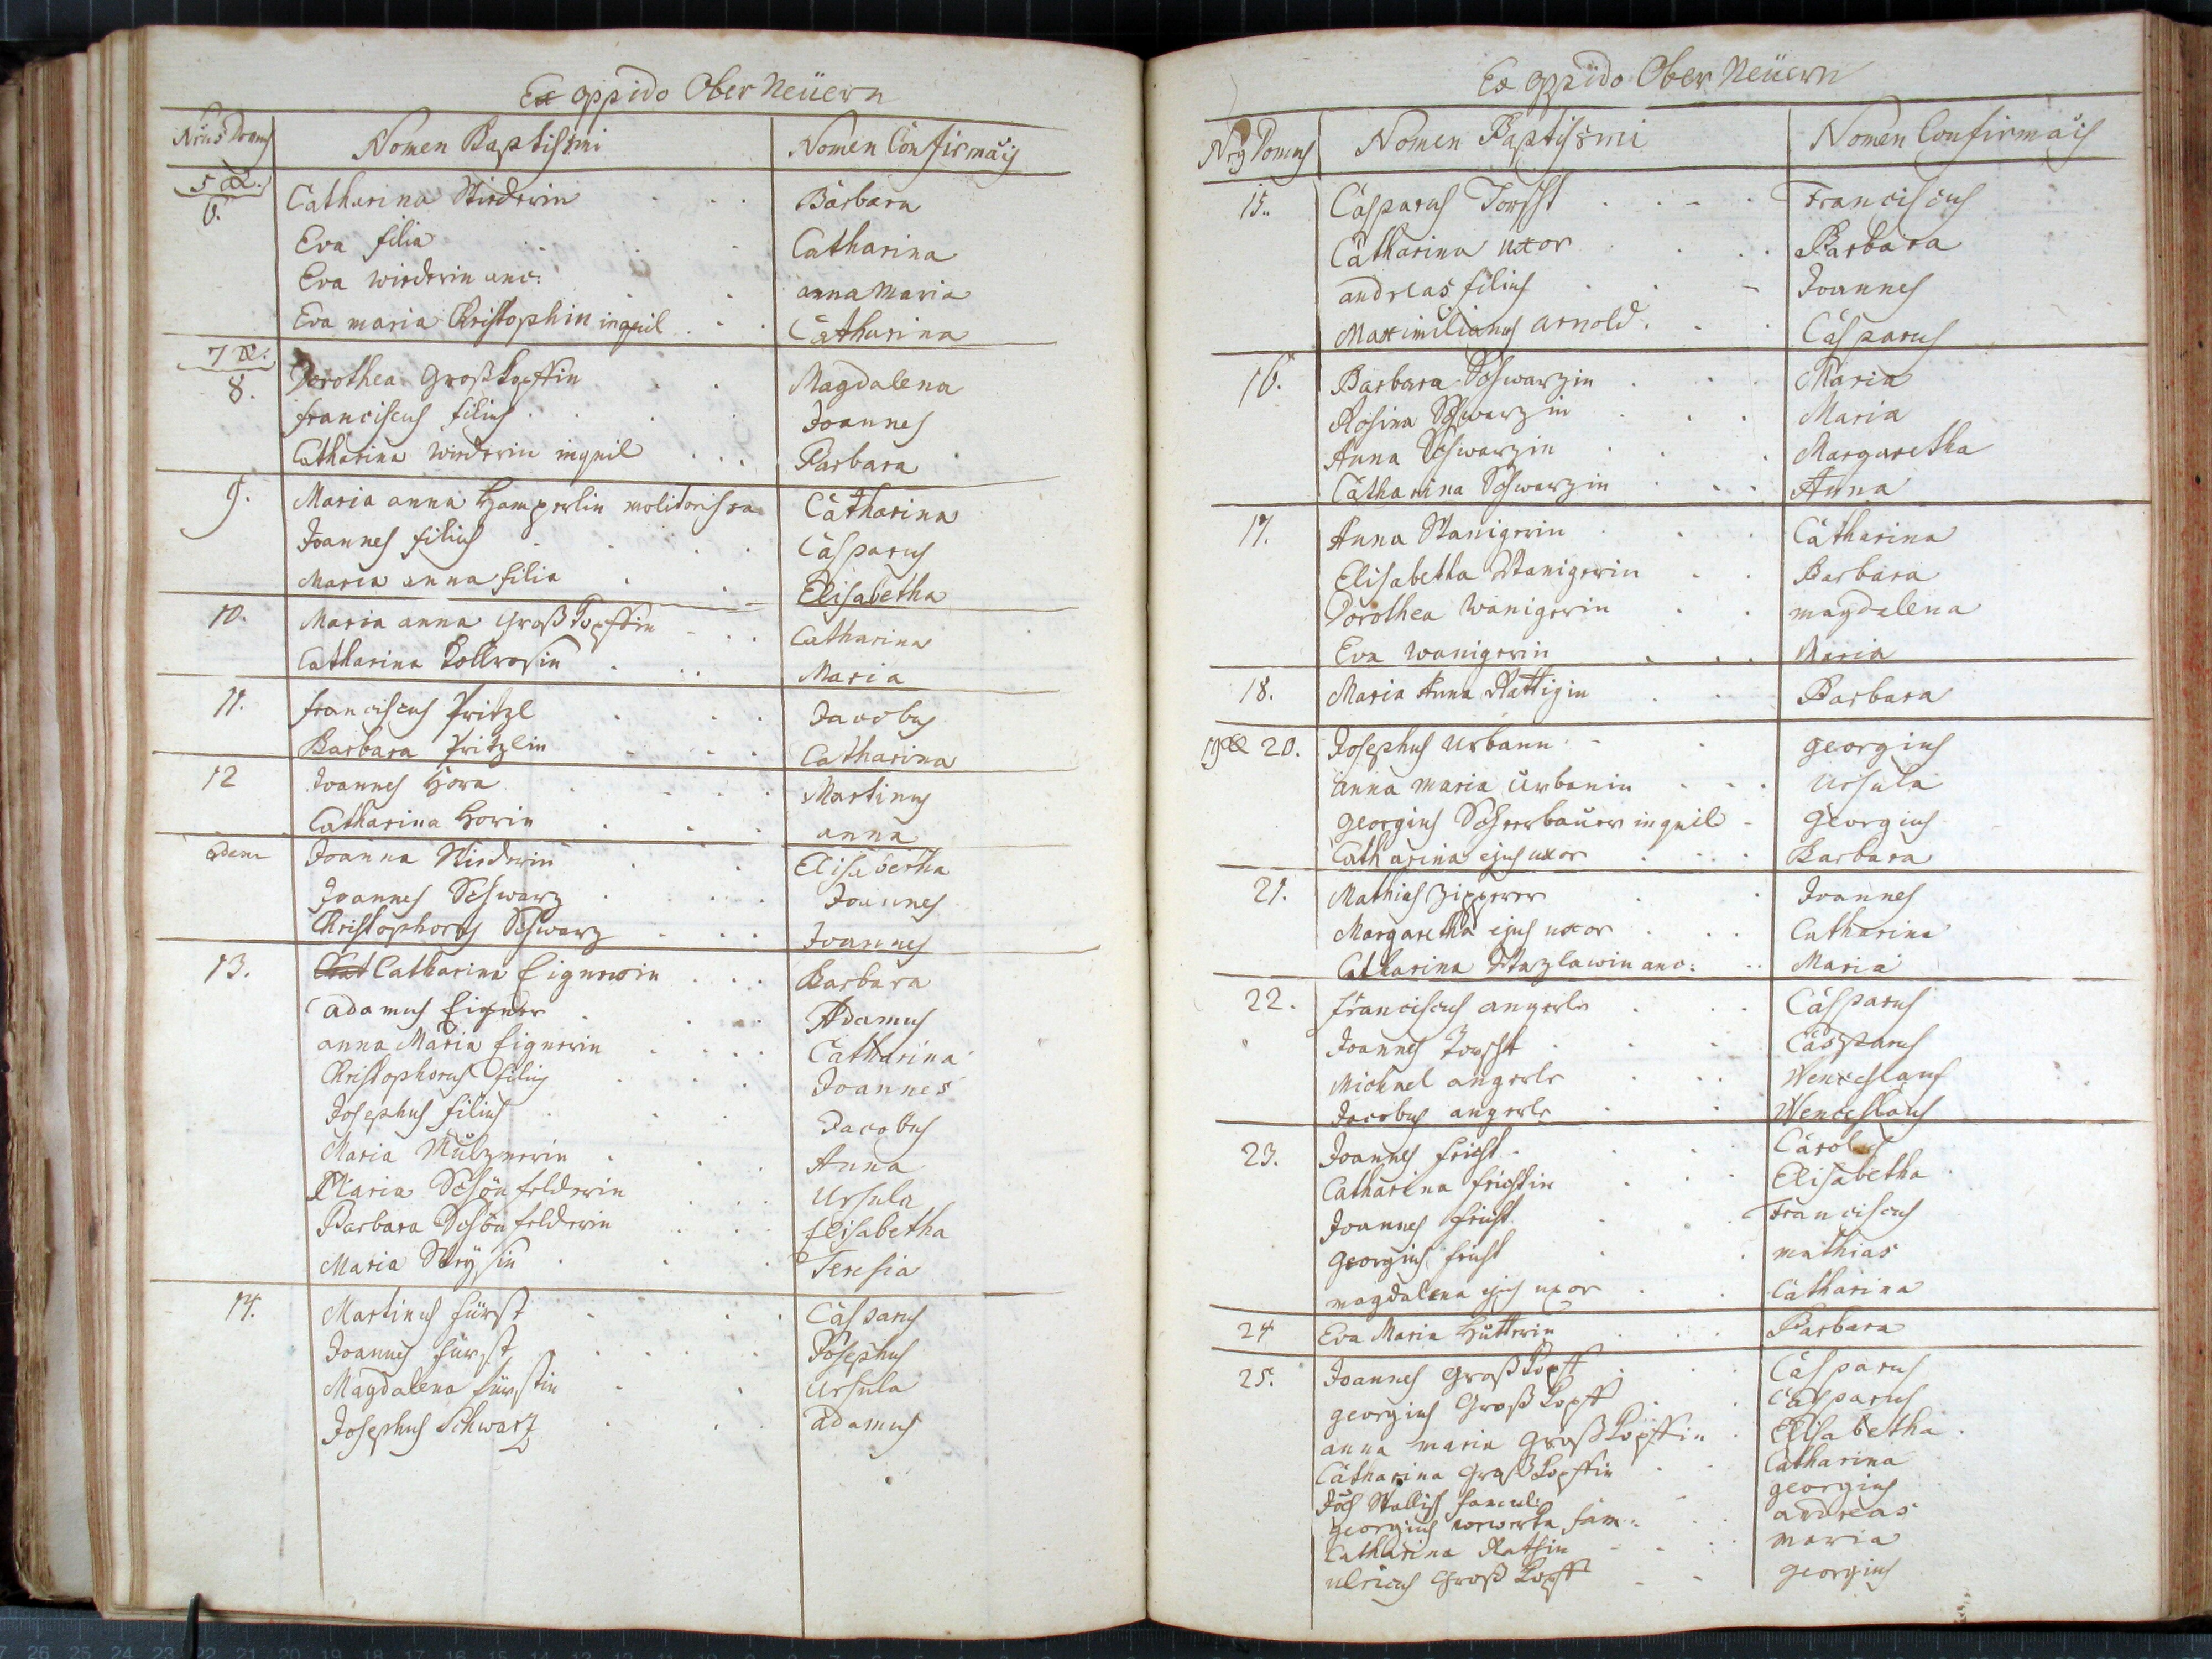 Ex oppido Ober Neüern
Nrus Domus Nomen Baptissmi Nomen Confirmãis
5 et 6. Catharina Riederin Barbara
Eva filia Catharina
Eva wiederin anc: anna Maria
Eva maria Christophin inquil Catharina
7 et 8. Dorothea Großkopffin Magdalena
franciscus filius Joannes
Catharina wiederin inquil Barbara
9. Maria anna Hamperlin molitorissa Catharina
Joannes filius Casparus
Maria anna filia Elisabetha
10. Maria anna Großkopffin Catharina
Catharina Maria
11. franciscus Pritzl Jacobus
Barbara Pritzlin Catharina
12 Joannes Hora Martinus
Catharina Horin anna
idem Joanna Riederin Elisabetha
Joannes Schwarz Joannes
Christophorus Schwarz Joannes
13. Catharina Eignerin Barbara
adamus Eigner Adamus
anna Maria Eignerin Catharina
Christophorus filius Joannes
Josephus filius Jacobus
Maria Mülznerin Anna
Maria Schönfelderin Ursula
Barbara Schönfelderin Elisabetha
Maria Teresia
14. Martinus fürst Casparus
Joannes fürst Josephus
Magdalena fürstin Ursula
Josephus Schwarz adamus
Ex oppido Ober Neüern
Nrus Domus Nomen Baptissmi Nomen Confirmãis
15. Casparus Franciscus
Catharina uxor Barbara
andreas filius Joannes
Maximilianus arnold Casparus
16. Barbara Schwarzin Maria
Rosina Schwarzin Maria
Anna Schwarzin Margaretha
Catharina Schwarzin Anna
17. Anna Wanigerin Catharina
Elisabetha Wanigerin Barbara
Dorothea Wanigerin magdalena
Eva Wanigerin Maria
18. Maria Anna Rattigin Barbara
19 et 20. Josephus Urbann georgius
anna maria Urbanin Ursula
georgius Scheerbauer inquil georgius
Catharina ejus uxor Barbara
21. Mathias Zipperer Joannes
Margaretha ejus uxor Catharina
Catharina Wazlawin anc: Maria
22. franciscus angerle Casparus
Joannes Casparus
Michael angerle Wenceslaus
Jacobus angerle Wenceslaus
23. Joannes fricht Carolus
Catharina frichtin Elisabetha
Joannes fricht Franciscus
georgius fricht mathias
magdalena ejus uxor Catharina
24 Eva Maria Hütterin Barbara
25. Joannes Großkopff Casparus
georgius Großkopff Casparus
anna maria Großkopffin Elisabetha
Catharina Großkopffin Catharina
famul: georgius
georgius fam: andreas
Catharina maria
ulricus Großkopff georgius